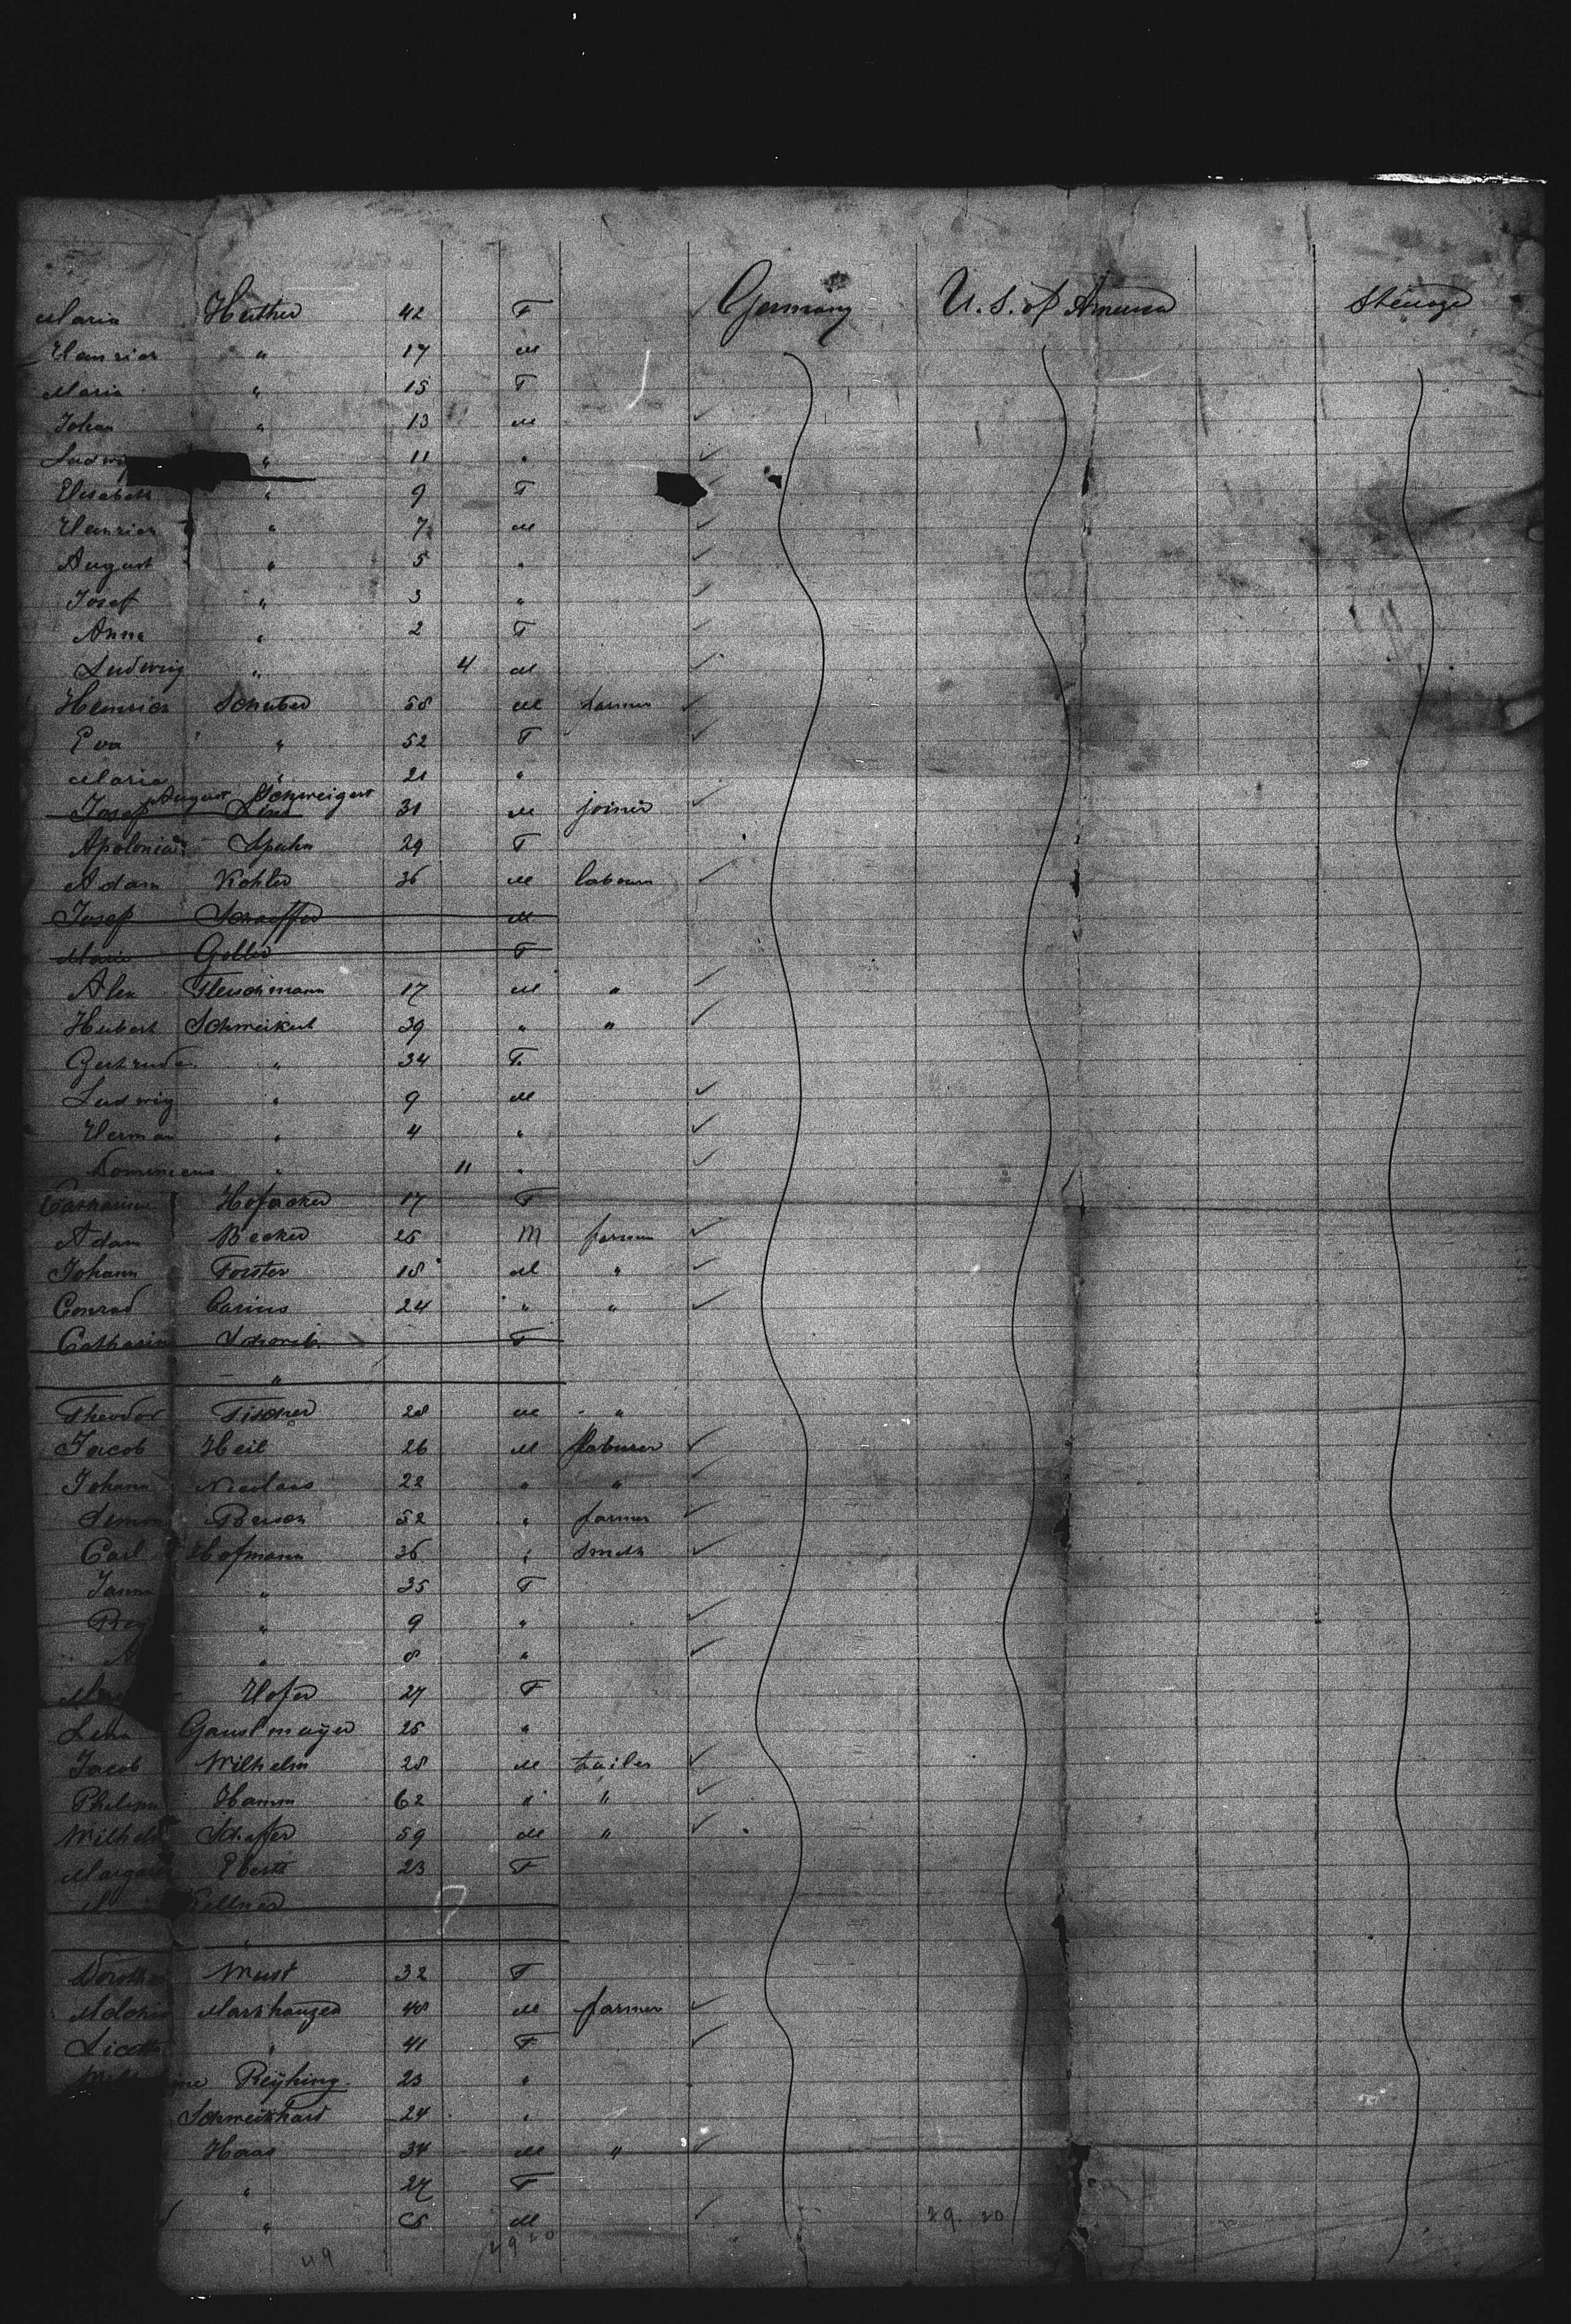 Maria Huther 42 F Germany U. S. of America Steerage
Heinrich " 17 M
Maria " 15 F
Johan " 13 M
Ludwig " 11 "
Elisabeth " 9 F
Heinrich " 7 M
August " 5 "
Josef " 3 "
Anna " 2 F
Ludwig " 4 M
Heinrich Schuber 58 M farmer
Eva " 52 F
Maria " 21 "
August Schweigert
Josef 31 M joiner
Apolonia Spuhn 29 F
Adam Kohler 36 M labourer
Josef Schaeffer M
Maria Goller F
Alex Fleischmann 17 M "
Hubert Schweikert 39 " "
Gertrude " 34 F
Ludwig " 9 M
Herman " 4 "
Dominicus " 11 "
Catharine Hofacker 17 F
Adam Becker 25 M farmer
Johann Forster 18 M "
Conrad Carius 24 " "
Catharin F
"
Theodor Fischer 28 M "
Jacob Heil 26 M labourer
Johann Nicolaus 22 " "
Simon 52 " farmer
Carl Hofmann 36 " smith
" 35 F
" 9 "
" 8 "
Hofer 27 F
Lena Ganslmayer 25 "
Jacob Wilhelm 28 M tailer
Philipp Hamm 62 " "
Wilhelm Schafer 59 M "
Margareth Eberts 23 F
Kellner
"
Dorothea Wust 32 F
Melchior Markhanzer 48 M farmer
" 41 F
Reÿhing 23 "
Schweickhard 24 "
Haas 34 M "
" 27 F
" M
49 29 20 29. 20